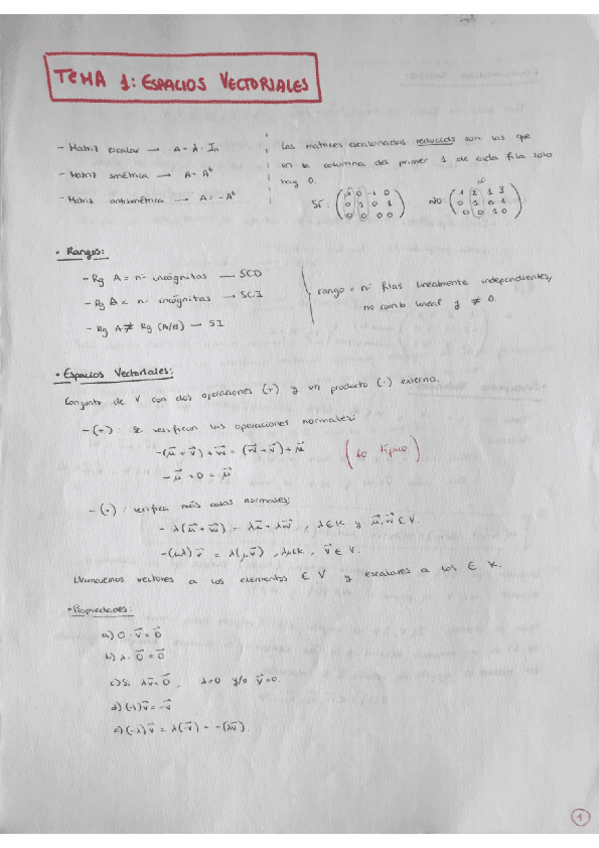 TEMA 1: ESPACIOS VECTORIALES
- Matriz escalar → A = λ · In
- Matriz simétrica → A = A^t
- Matriz antisimétrica → A = -A^t
Las matrices escalonadas reducidas son las que
en la columna del primer 1 de cada fila solo
hay 0.
SÍ: (1 0 -1 0 / 0 1 0 1 / 0 0 0 0) NO: (1 2 1 3 / 0 1 0 1 / 0 0 1 0)
• Rangos:
- Rg A = nº incógnitas — SCD
- Rg A < nº incógnitas → SCI
- Rg A ≠ Rg (A/B) → SI
rango = nº filas linealmente independientes,
no comb lineal y ≠ 0.
• Espacios Vectoriales:
Conjunto de V con dos operaciones (+) y un producto (·) externo.
- (+) : Se verifican las operaciones normales:
- (u⃗ + v⃗) + w⃗ = (w⃗ + v⃗) + u⃗
- u⃗ + 0 = u⃗
(Lo típico)
- (·) : verifica más cosas normales;
- λ(u⃗ + w⃗) = λu⃗ + λw⃗ , λ ∈ K y u⃗, w⃗ ∈ V.
- (μλ) v⃗ = λ(μv⃗) , λμ ∈ K , v⃗ ∈ V.
Llamaremos vectores a los elementos ∈ V y escalares a los ∈ K.
• Propiedades:
a) 0 · v⃗ = 0⃗
b) λ · 0⃗ = 0⃗
c) Si λv⃗ = 0⃗ , λ=0 y/o v⃗=0.
d) (-1)v⃗ = -v⃗
e) (-λ)v⃗ = λ(-v⃗) = -(λv⃗)
1